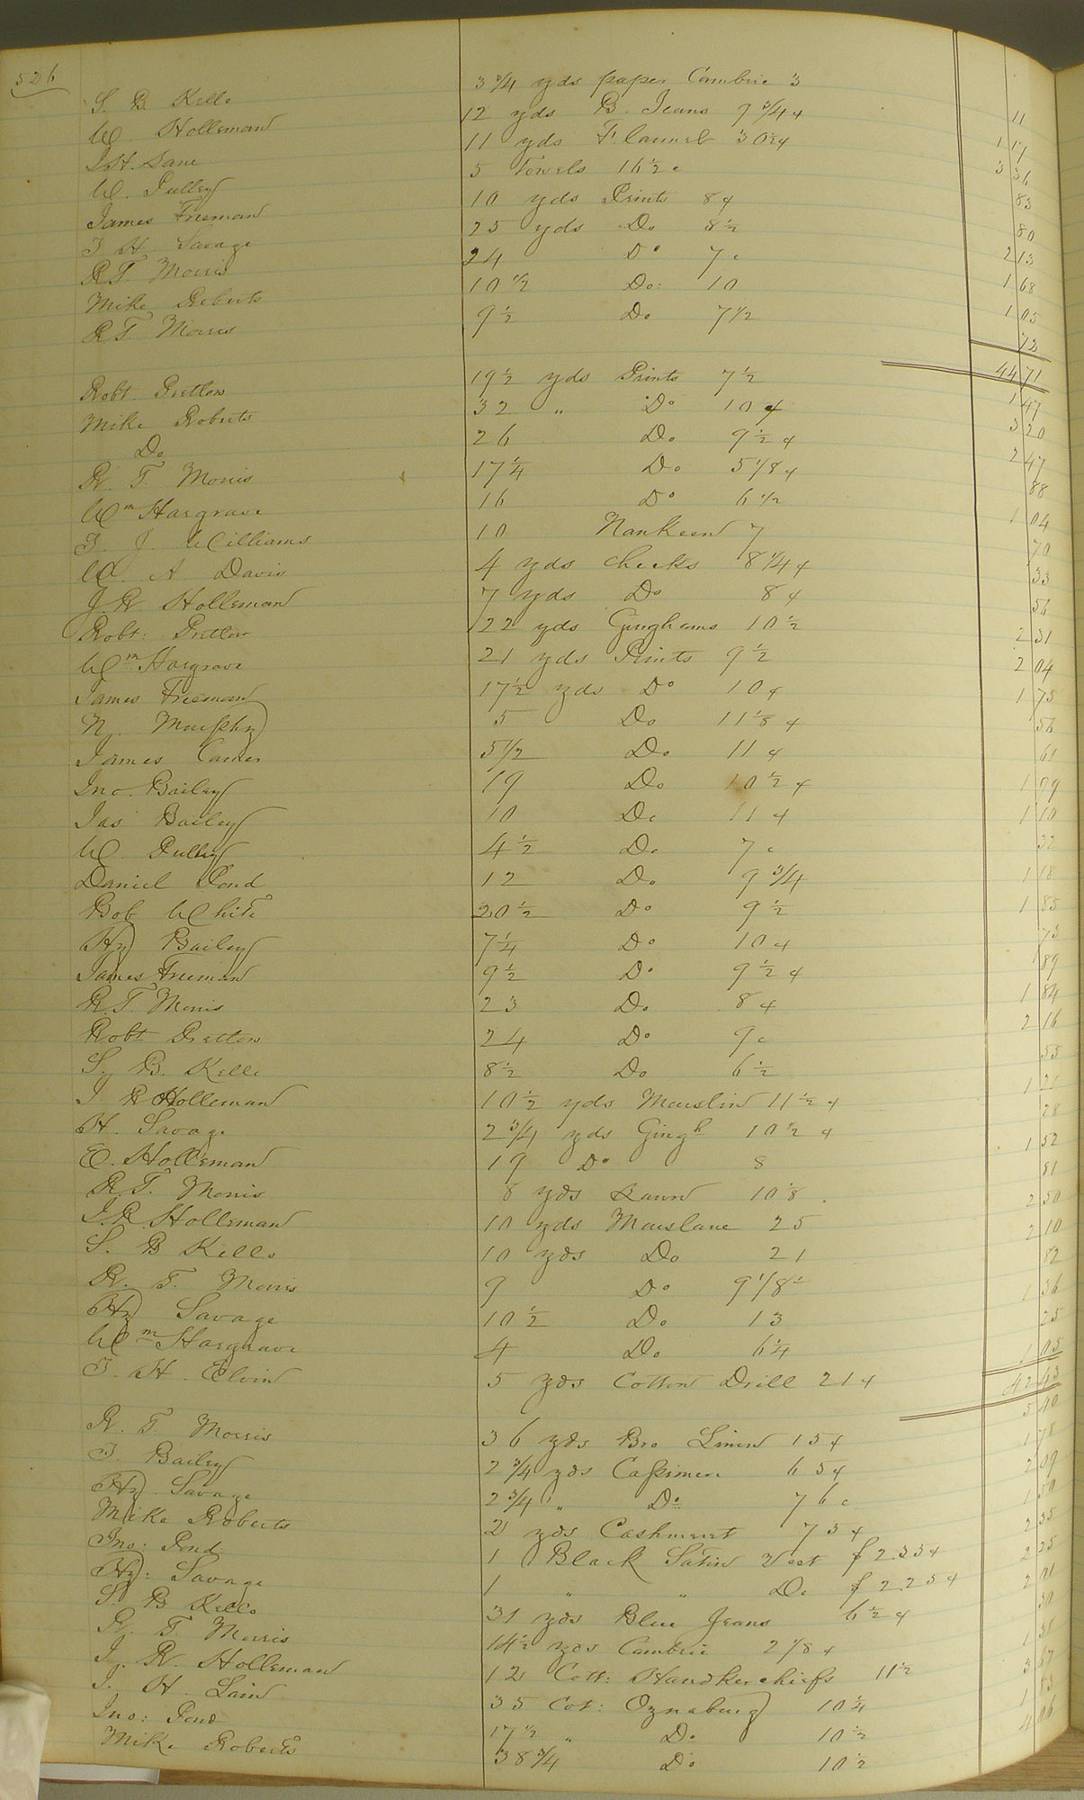 526
S. B. Kello 3 3/4 yds paper Cambric 3 11
W. Holleman 12 yds B. Jeans 9 3/4 ¢ 1 17
J. H. Lane 11 yds Flannel 30½ ¢ 3 36
W. Pulley 5 Towels 16½ c 83
James Freeman 10 yds Prints 8 ¢ 80
T H Savage 25 yds Do 8½ 2 13
R T. Morris 24 Do 7 c 1 68
Mike Roberts 10 ½ Do: 10 1 05
R T Morris 9½ Do 7½ 72
44 71
Robt Pretlow 19½ yds Prints 7½ 1 47
Mike Roberts 32 " Do 10 ¢ 3 20
Do 26 Do 9½ ¢ 2 47
R. T. Morris 17¼ Do 5 1/8 ¢ 88
Wm Hargrave 16 Do 6 ½ 1 04
T. J. Williams 10 Nankeen 7 70
W. A Davis 4 yds checks 8 1/4 ¢ 33
J. R Holleman 7 yds Do 8 ¢ 56
Robt: Pretlow 22 yds Ginghams 10½ 2 31
Wm Hargrave 21 yds Prints 9½ 2 04
James Freeman 17½ yds Do 10 ¢ 1 75
N. Murphy 5 Do 11 1/8 ¢ 56
James Carter 5½ Do 11 ¢ 61
Jno. Bailey 19 Do 10½ ¢ 1 99
Jas Bailey 10 Do 11 ¢ 1 10
W Pulley 4½ Do 7 c 32
Daniel Pond 12 Do 9 3/4 1 18
Bob White 20½ Do 9½ 1 95
Hy Bailey 7¼ Do 10 ¢ 73
James Freeman 9½ Do 9½ ¢ 89
R. T. Morris 23 Do 8 ¢ 1 84
Robt Pretlow 24 Do 9 c 2 16
S. B. Kello 8½ Do 6½ 55
J R Holleman 10½ yds Mouslin 11½ ¢ 1 21
H. Savage 2 3/4 yds Gingh 10½ ¢ 28
E. Holleman 19 Do 8 1 52
R. T. Morris 8 yds Lawn 10 1/8 81
J. R. Holleman 10 yds Mouslane 25 2 50
S. B Kello 10 yds Do 21 2 10
R. T. Morris 9 Do 9 1/8 82
Hy Savage 10½ Do 13 1 36
Wm Hargrave 4 Do 6¼ 25
T. H. Elvin 5 yds Cotton Drill 21 ¢ 1 05
42 43
R. T. Morris 36 yds Bro Linen 15 ¢ 5 40
T. Bailey 2 3/4 yds Cassimere 65 ¢ 1 78
Hy Savage 2 3/4 " Do 76 c 2 09
Mike Roberts 2 yds Cashmeret 75 ¢ 1 50
Jno: Pond 1 Black Satin Vest $ 2.35 ¢ 2 35
Hy: Savage 1 " " Do $ 2.25 ¢ 2 25
S. B Kello 31 yds Blue Jeans 6½ ¢ 2 01
R. T. Morris 14½ yds Cambric 2 1/8 ¢ 30
J. R. Holleman 12 Cott: Handkerchiefs 11½ 1 38
J. H. Lain 35 Cot: Oznaburg 10¼ 3 57
Jno: Pond 17½ " Do 10½ 1 83
Mike Roberts 38 3/4 Do 10½ 4 06